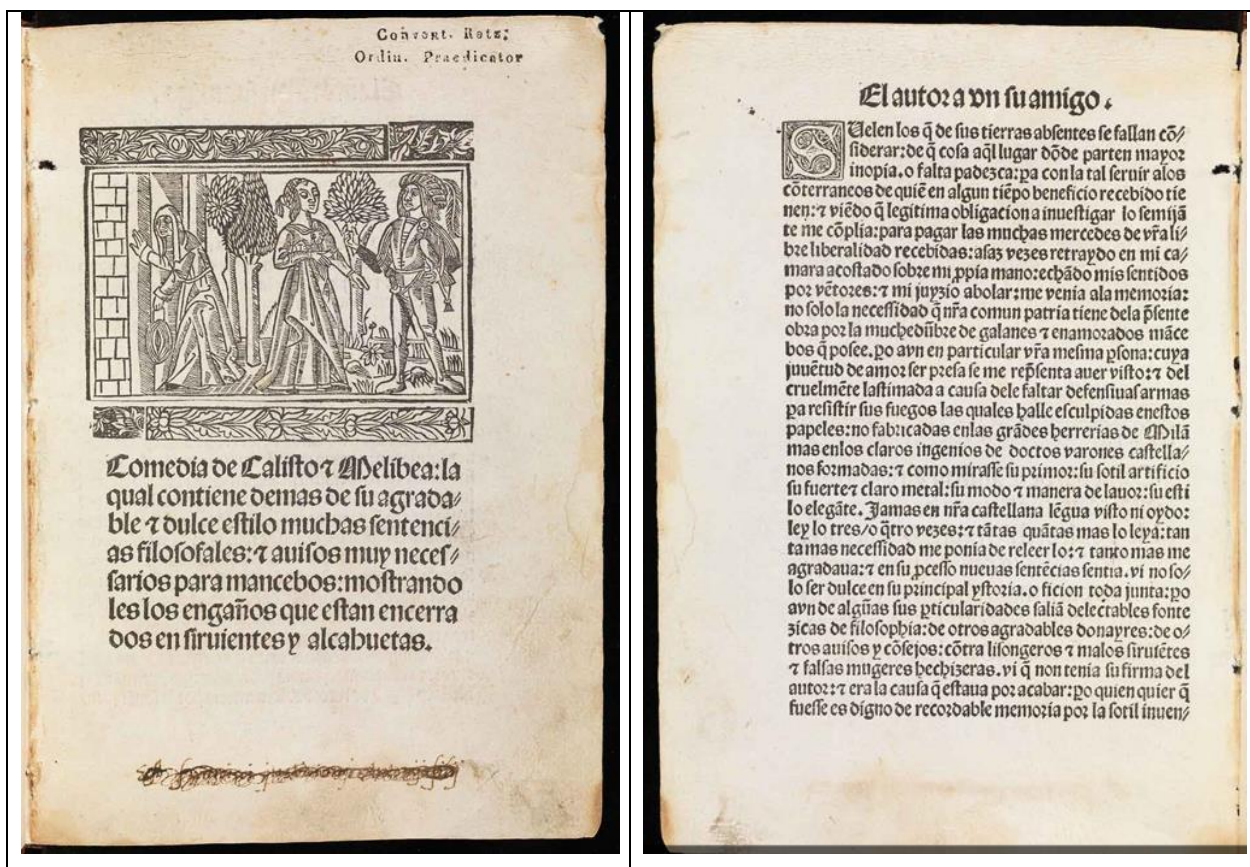 Convent. Retz:
Ordin. Praedicator
Comedia de Calisto ⁊ Melibea: la
qual contiene demas de su agrada/
ble ⁊ dulce estilo muchas sentenci/
as filosofales: ⁊ auisos muy neces/
sarios para mancebos: mostrando
les los engaños que estan encerra
dos en siruientes y alcahuetas.
El autor a vn su amigo.
Suelen los q̃ de sus tierras absentes se fallan cõ/
siderar: de q̃ cosa aq̃l lugar dõde parten mayor
inopia. o falta padezca: pa con la tal seruir alos
cõterraneos de quiẽ en algun tiẽpo beneficio recebido tie
nen: ⁊ viẽdo q̃ legitima obligacion a inuestigar lo semijã
te me cõplia: para pagar las muchas mercedes de vr̃a li/
bre liberalidad recebidas: asaz vezes retraydo en mi ca/
mara acostado sobre mi ꝓpia mano: echãdo mis sentidos
por vẽtores: ⁊ mi juyzio abolar: me venia ala memoria:
no solo la necessidad q̃ nr̃a comun patria tiene dela p̃sente
obra por la muchedũbre de galanes ⁊ enamorados mãce
bos q̃ posee. ꝑo avn en particular vr̃a mesma ꝑsona: cuya
juuẽtud de amor ser presa se me rep̃senta auer visto: ⁊ del
cruelmẽte lastimada a causa dele faltar defensiuas armas
ꝑa resistir sus fuegos las quales halle esculpidas enestos
papeles: no fabricadas enlas grãdes herrerias de Milã
mas enlos claros ingenios de doctos varones castella/
nos formadas: ⁊ como mirasse su primor: su sotil artificio
su fuerte ⁊ claro metal: su modo ⁊ manera de lauor: su esti
lo elegãte. Jamas en nr̃a castellana lẽgua visto ni oydo:
ley lo tres/o q̃tro vezes: ⁊ tãtas quãtas mas lo leya: tan
ta mas necessidad me ponia de releer lo: ⁊ tanto mas me
agradaua: ⁊ en su ꝓcesso nueuas sentẽcias sentia. vi no so/
lo ser dulce en su principal ystoria. o ficion toda junta: ꝑo
avn de algũas sus ꝑticularidades saliã delectables fonte
zicas de filosophia: de otros agradables donayres: de o/
tros auisos y cõsejos: cõtra lisongeros ⁊ malos siruiẽtes
⁊ falsas mugeres hechizeras. vi q̃ non tenia su firma del
autor: ⁊ era la causa q̃ estaua por acabar: ꝑo quien quier q̃
fuesse es digno de recordable memoria por la sotil inuen/